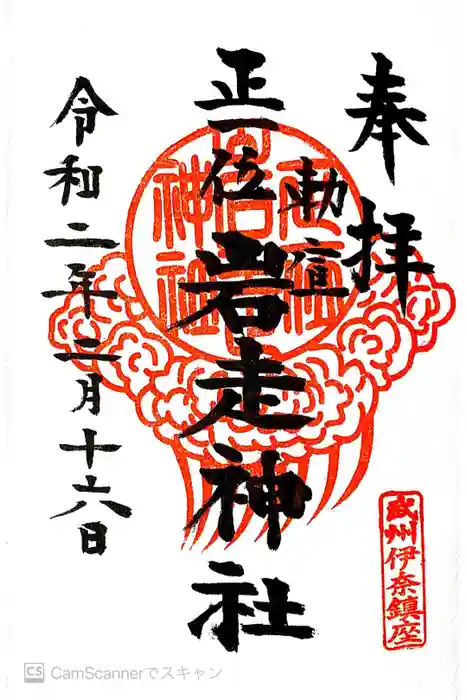 奉拝
勅宣
正一位
岩走神社
令和二年二月十六日
武州伊奈鎮座
CS CamScannerでスキャン